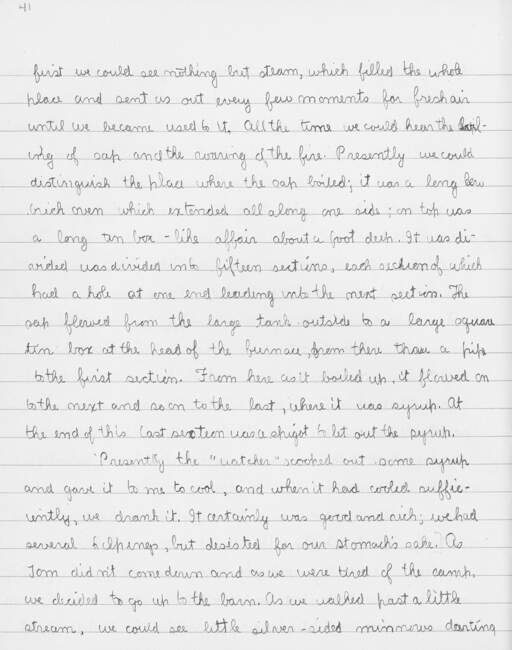 41
first we could see nothing but steam, which filled the whole
place and sent us out every few moments for fresh air
until we became used to it. All the time we could hear the boil-
ing of sap and the roaring of the fire. Presently we could
distinguish the place where the sap boiled; it was a long low
brick oven which extended all along one side; on top was
a long tin box-like affair about a foot deep. It was di-
vided was divided into fifteen sections, each section of which
had a hole at one end leading into the next section. The
sap flowed from the large tank outside to a large square
tin box at the head of the furnace, from there thru a pipe
to the first section. From here as it boiled up, it flowed on
to the next and so on to the last, where it was syrup. At
the end of this last section was a spigot to let out the syrup.
Presently the "watcher" scooped out some syrup
and gave it to me to cool, and when it had cooled suffic-
iently, we drank it. It certainly was good and rich; we had
several helpings, but desisted for our stomach's sake. As
Tom didn't come down and as we were tired of the camp,
we decided to go up to the barn. As we walked past a little
stream, we could see little silver-sided minnows darting